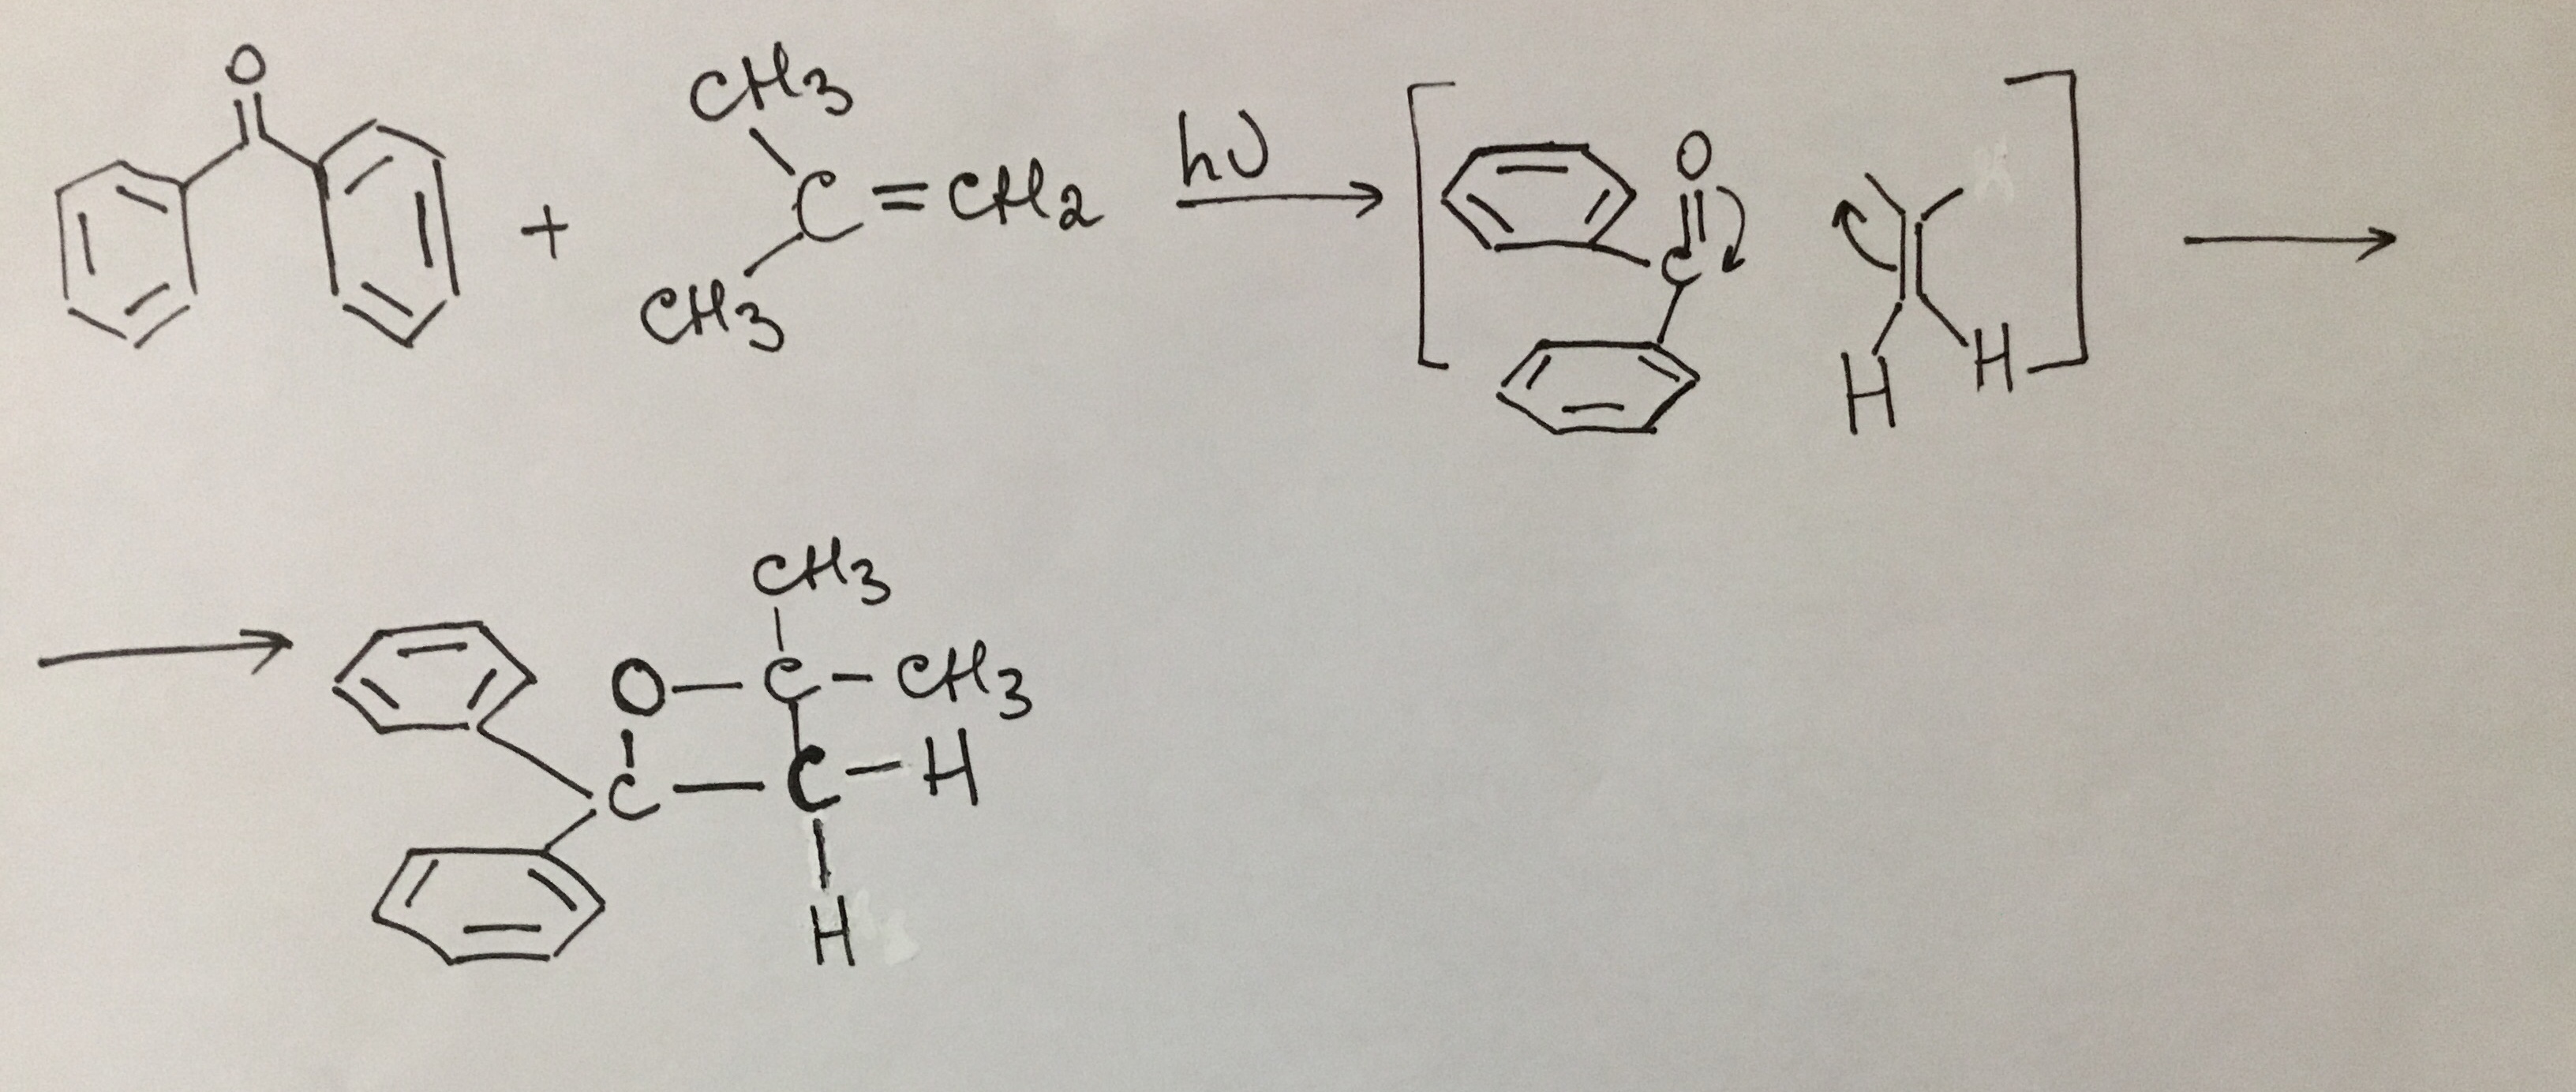 O
CH3
+ C=CH2 hυ O
CH3 C
H H
CH3
O—C—CH3
C—C—H
H